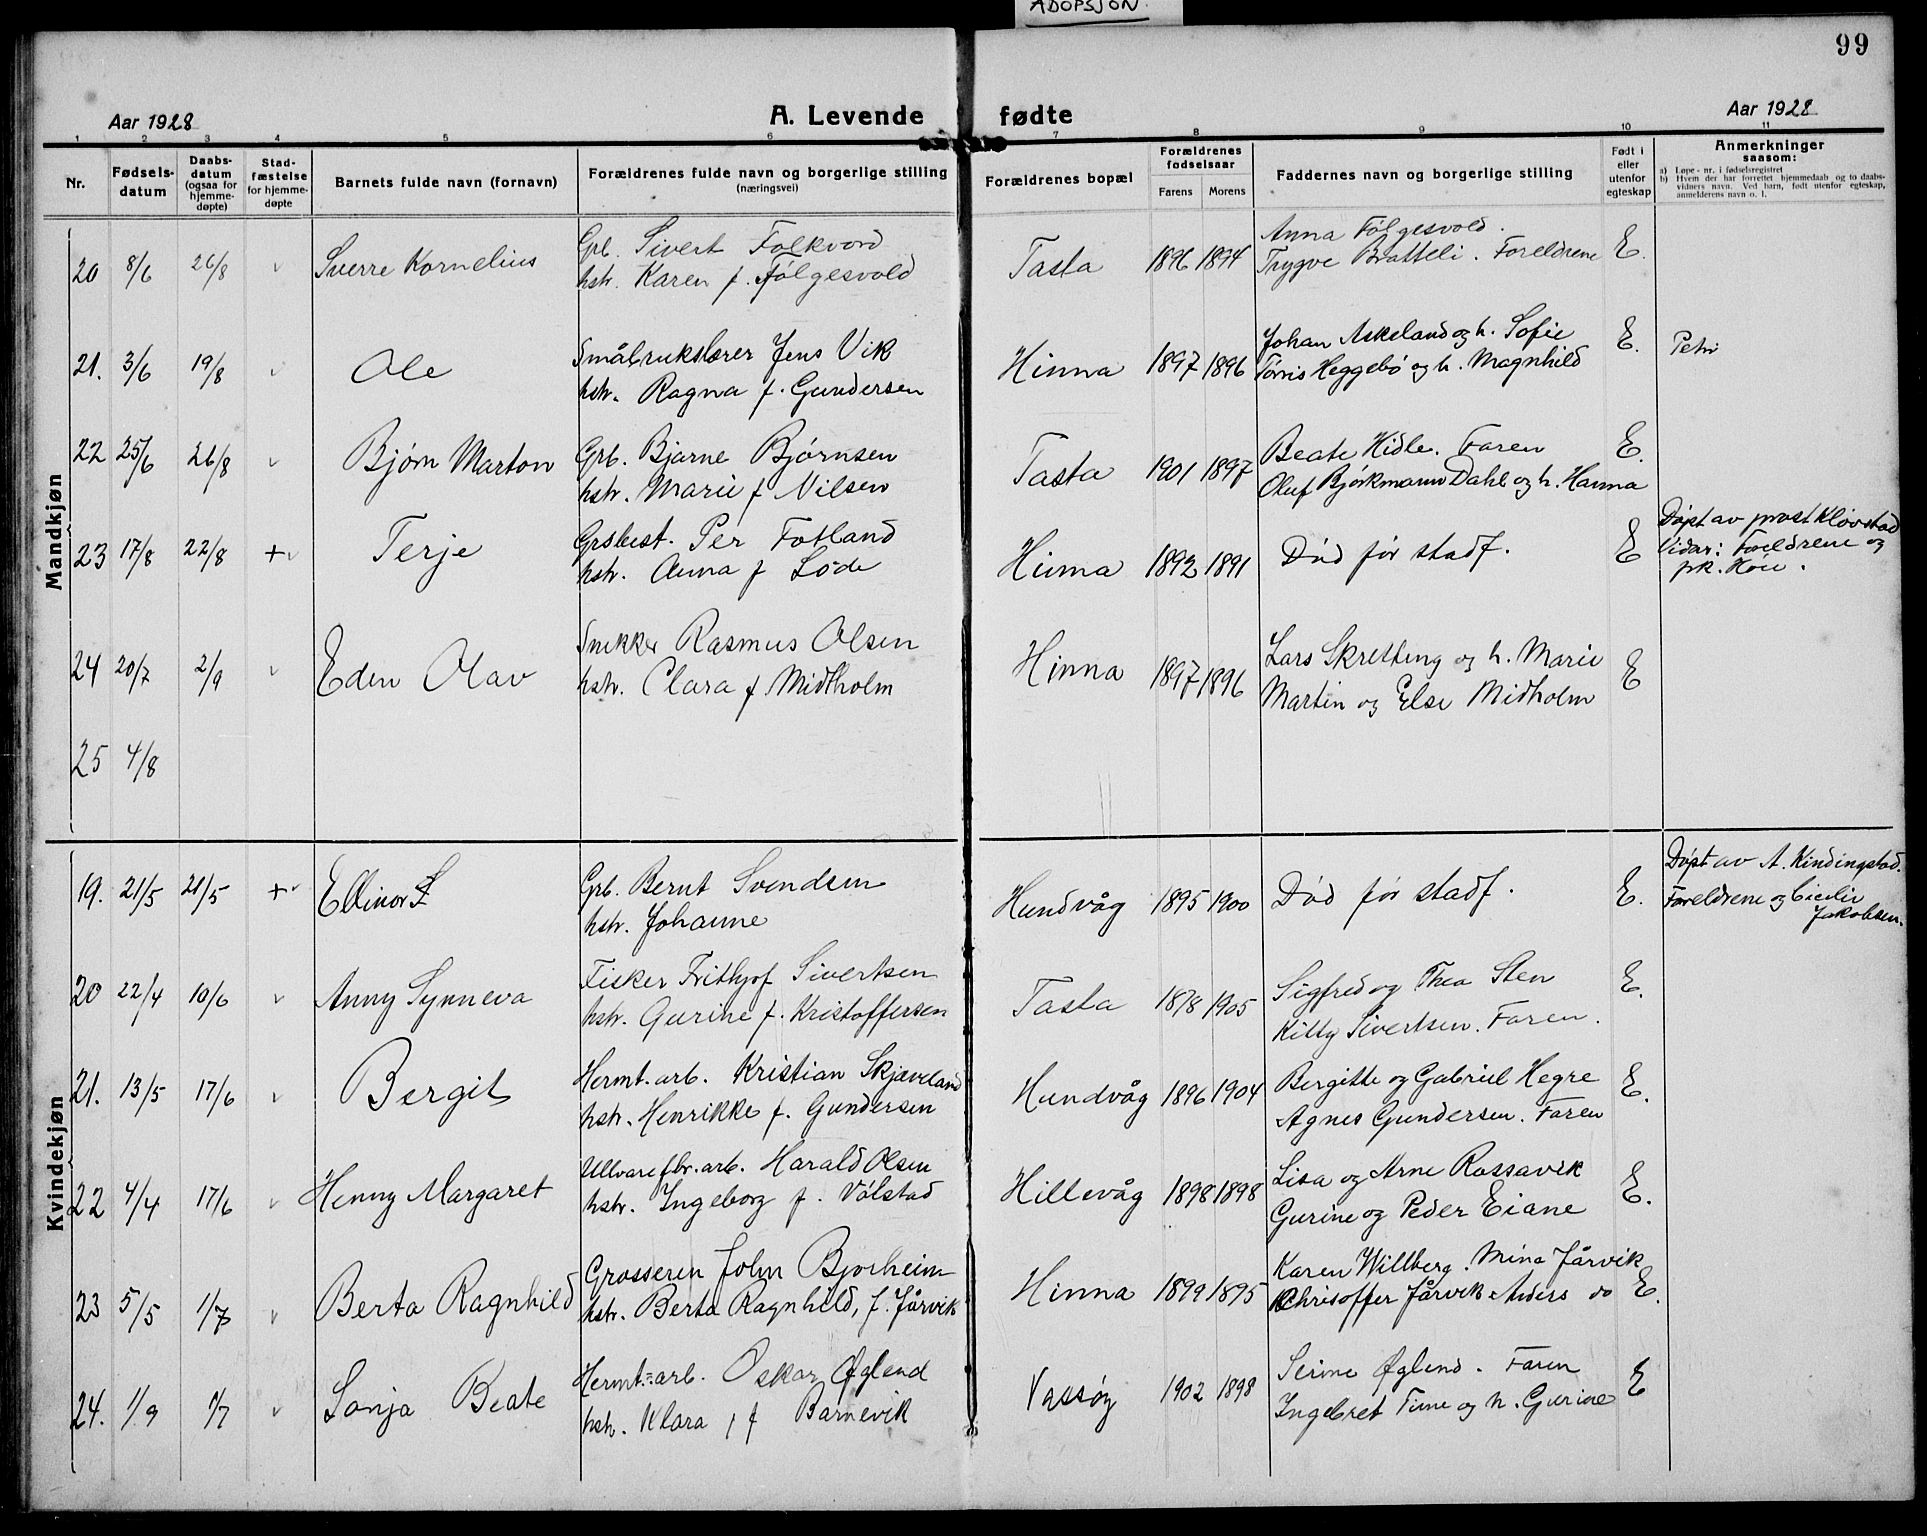 ADOPSJON.
99
Aar 1928
A. Levende fødte
Aar 1928
1 2 3 4 5 6 7 8 9 10 11
Nr.
Fødsels-
datum
Daabs-
datum
(ogsaa for
hjemme-
døpte)
Stad-
fæstelse
for hjemme-
døpte
Barnets fulde navn (fornavn)
Forældrenes fulde navn og borgerlige stilling
(næringsvei)
Forældrenes bopæl
Forældrenes
fødselsaar
Farens Morens
Faddernes navn og borgerlige stilling
Født i
eller
utenfor
egteskap
Anmerkninger
saasom:
a) Løpe-nr. i fødselsregistret
b) Hvem der har forrettet hjemmedaab og to daabs-
vidners navn. Ved barn, født utenfor egteskap,
anmelderens navn o. l.
Mandkjøn
20 8/6 26/8 Sverre Kornelius Grb. Sivert Folkvord Tasta 1896 1894 Anna Følgesvold. E.
hstr. Karen f. Følgesvold Trygve Bratteli. Foreldrene
21. 3/6 19/8 Ole Småbrukslærer Jens Vik Hinna 1897 1896 Johan Askeland og h. Sofie E. Petri
hstr. Ragna f. Gundersen Tørris Heggebø og h. Magnhild
22 25/6 26/8 Bjørn Marton Grb. Bjarne Bjørnsen Tasta 1901 1897 Beate Hidle. Faren E.
hstr. Marie f Nilsen Oluf Bjørkmann Dahl og h. Hanna
23 17/8 22/8 + Terje Grsbest. Per Fotland Hinna 1892 1891 Død før stadf. E Døpt av prost Kløvstad
hstr. Anna f Løde Vidar: Foreldrene og
pk. Høie.
24 20/7 2/9 Eden Olav Snekker Rasmus Olsen Hinna 1897 1896 Lars Skretting og h. Marie E
hstr. Clara f Midtholm Martin og Else Midholm
25 4/8
Kvindekjøn
19. 21/5 21/5 + Ellinor Grb. Bernt Svendsen Hundvåg 1895 1900 Død før stadf. E. Døpt av A. Kindingstad.
hstr. Johanne Foreldrene og Cicilie
Jakobsen.
20 22/4 10/6 Anny Synneva Fisker Frithjof Sivertsen Tasta 1878 1905 Sigfred og Thea Sten E.
hstr. Gurine f. Kristoffersen Kitty Sivertsen. Faren.
21. 13/5 17/6 Bergit Hermt. arb. Kristian Skjæveland Hundvåg 1896 1904 Bergitte og Gabriel Hegre E.
hstr. Henrikke f. Gundersen Agnes Gundersen. Faren
22 4/4 17/6 Henny Margaret Ullvarefbr. arb. Harald Olsen Hillevåg 1898 1898 Lisa og Arne Rossavik E.
hstr. Ingeborg f. Vølstad Gurine og Peder Eiane
23 5/5 1/7 Berta Ragnhild Grosseren John Bjorheim Hinna 1899 1895 Karen Willberg. Mina Jårvik E.
hstr. Berta Ragnhild, f. Jårvik Chrisoffer Jårvik Anders do
24. 1/9 1/7 Sonja Beate Hermt.arb. Oskar Øglend Vassøy 1902 1898 Serine Øglend. Faren E
hstr. Klara, f Barnevik Ingebret Time og h. Gurine